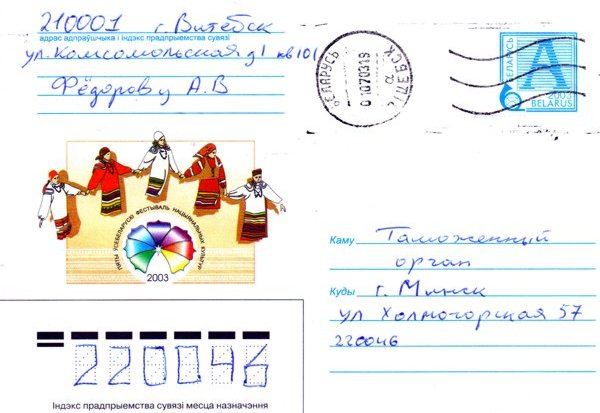 210001 г. Витебск
адрас адпраўшчыка і індэкс прадпрыемства сувязі
ул. Комсомольская д1 кв101
Фёдорову А.В
БЕЛАРУСЬ
ВІЦЕБСК
БЕЛАРУСЬ
А
2002
BELARUS
ПЯТЫ УСЕБЕЛАРУСКІ ФЕСТЫВАЛЬ НАЦЫЯНАЛЬНЫХ КУЛЬТУР
2003
Каму
Таможенный
орган
Куды
г. Минск
ул Холмогорская 57
220046
220046
Індэкс прадпрыемства сувязі месца назначэння